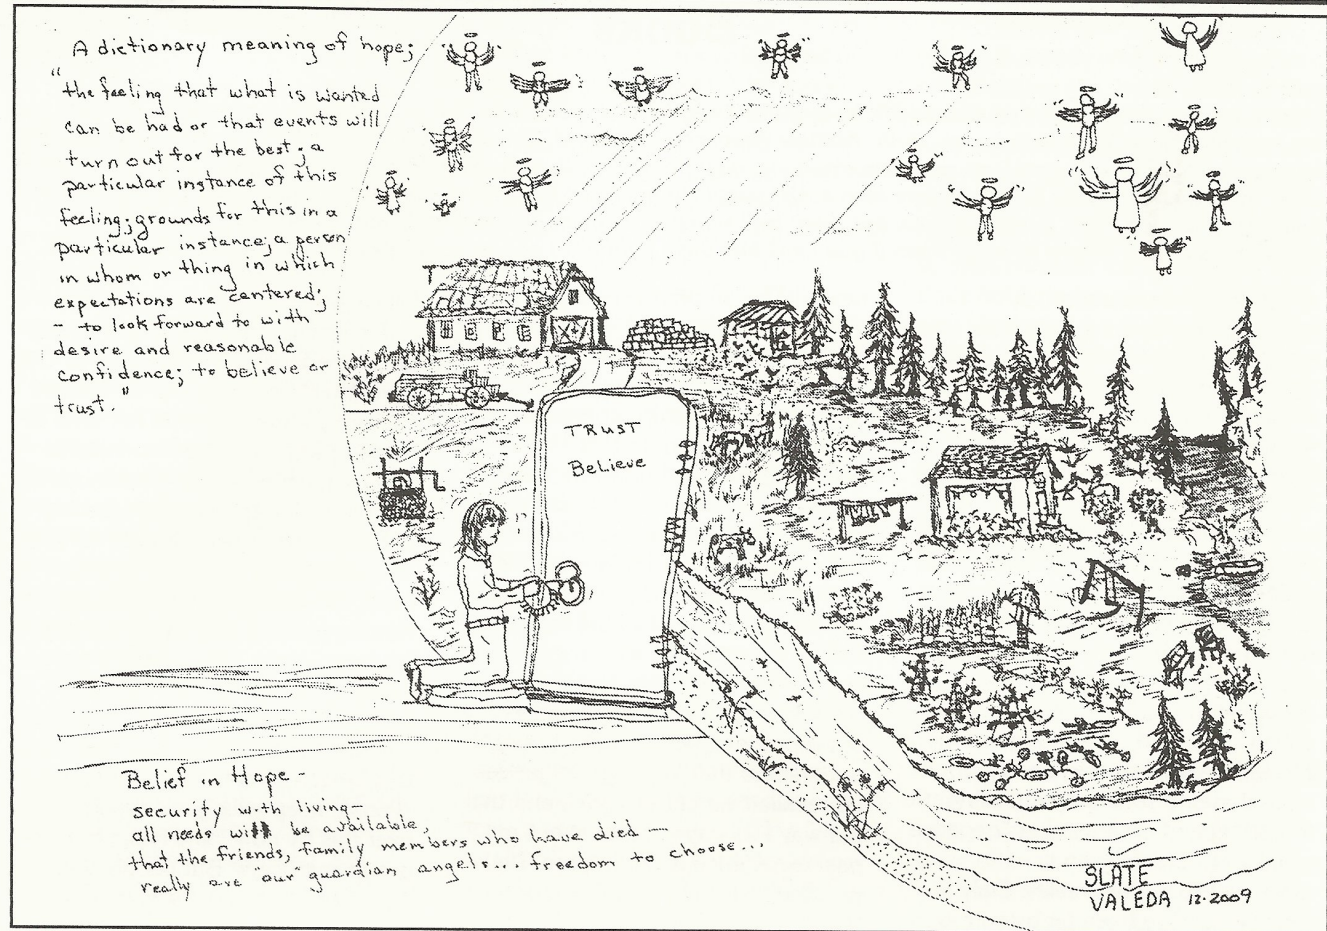 A dictionary meaning of hope;
"the feeling that what is wanted
can be had or that events will
turn out for the best; a
particular instance of this
feeling; grounds for this in a
particular instance; a person
in whom or thing in which
expectations are centered;
- to look forward to with
desire and reasonable
confidence; to believe or
trust."
TRUST
Believe
Belief in Hope -
security with living-
all needs will be available,
that the friends, family members who have died -
really are "our" guardian angels... freedom to choose...
SLATE
VALEDA 12-2009